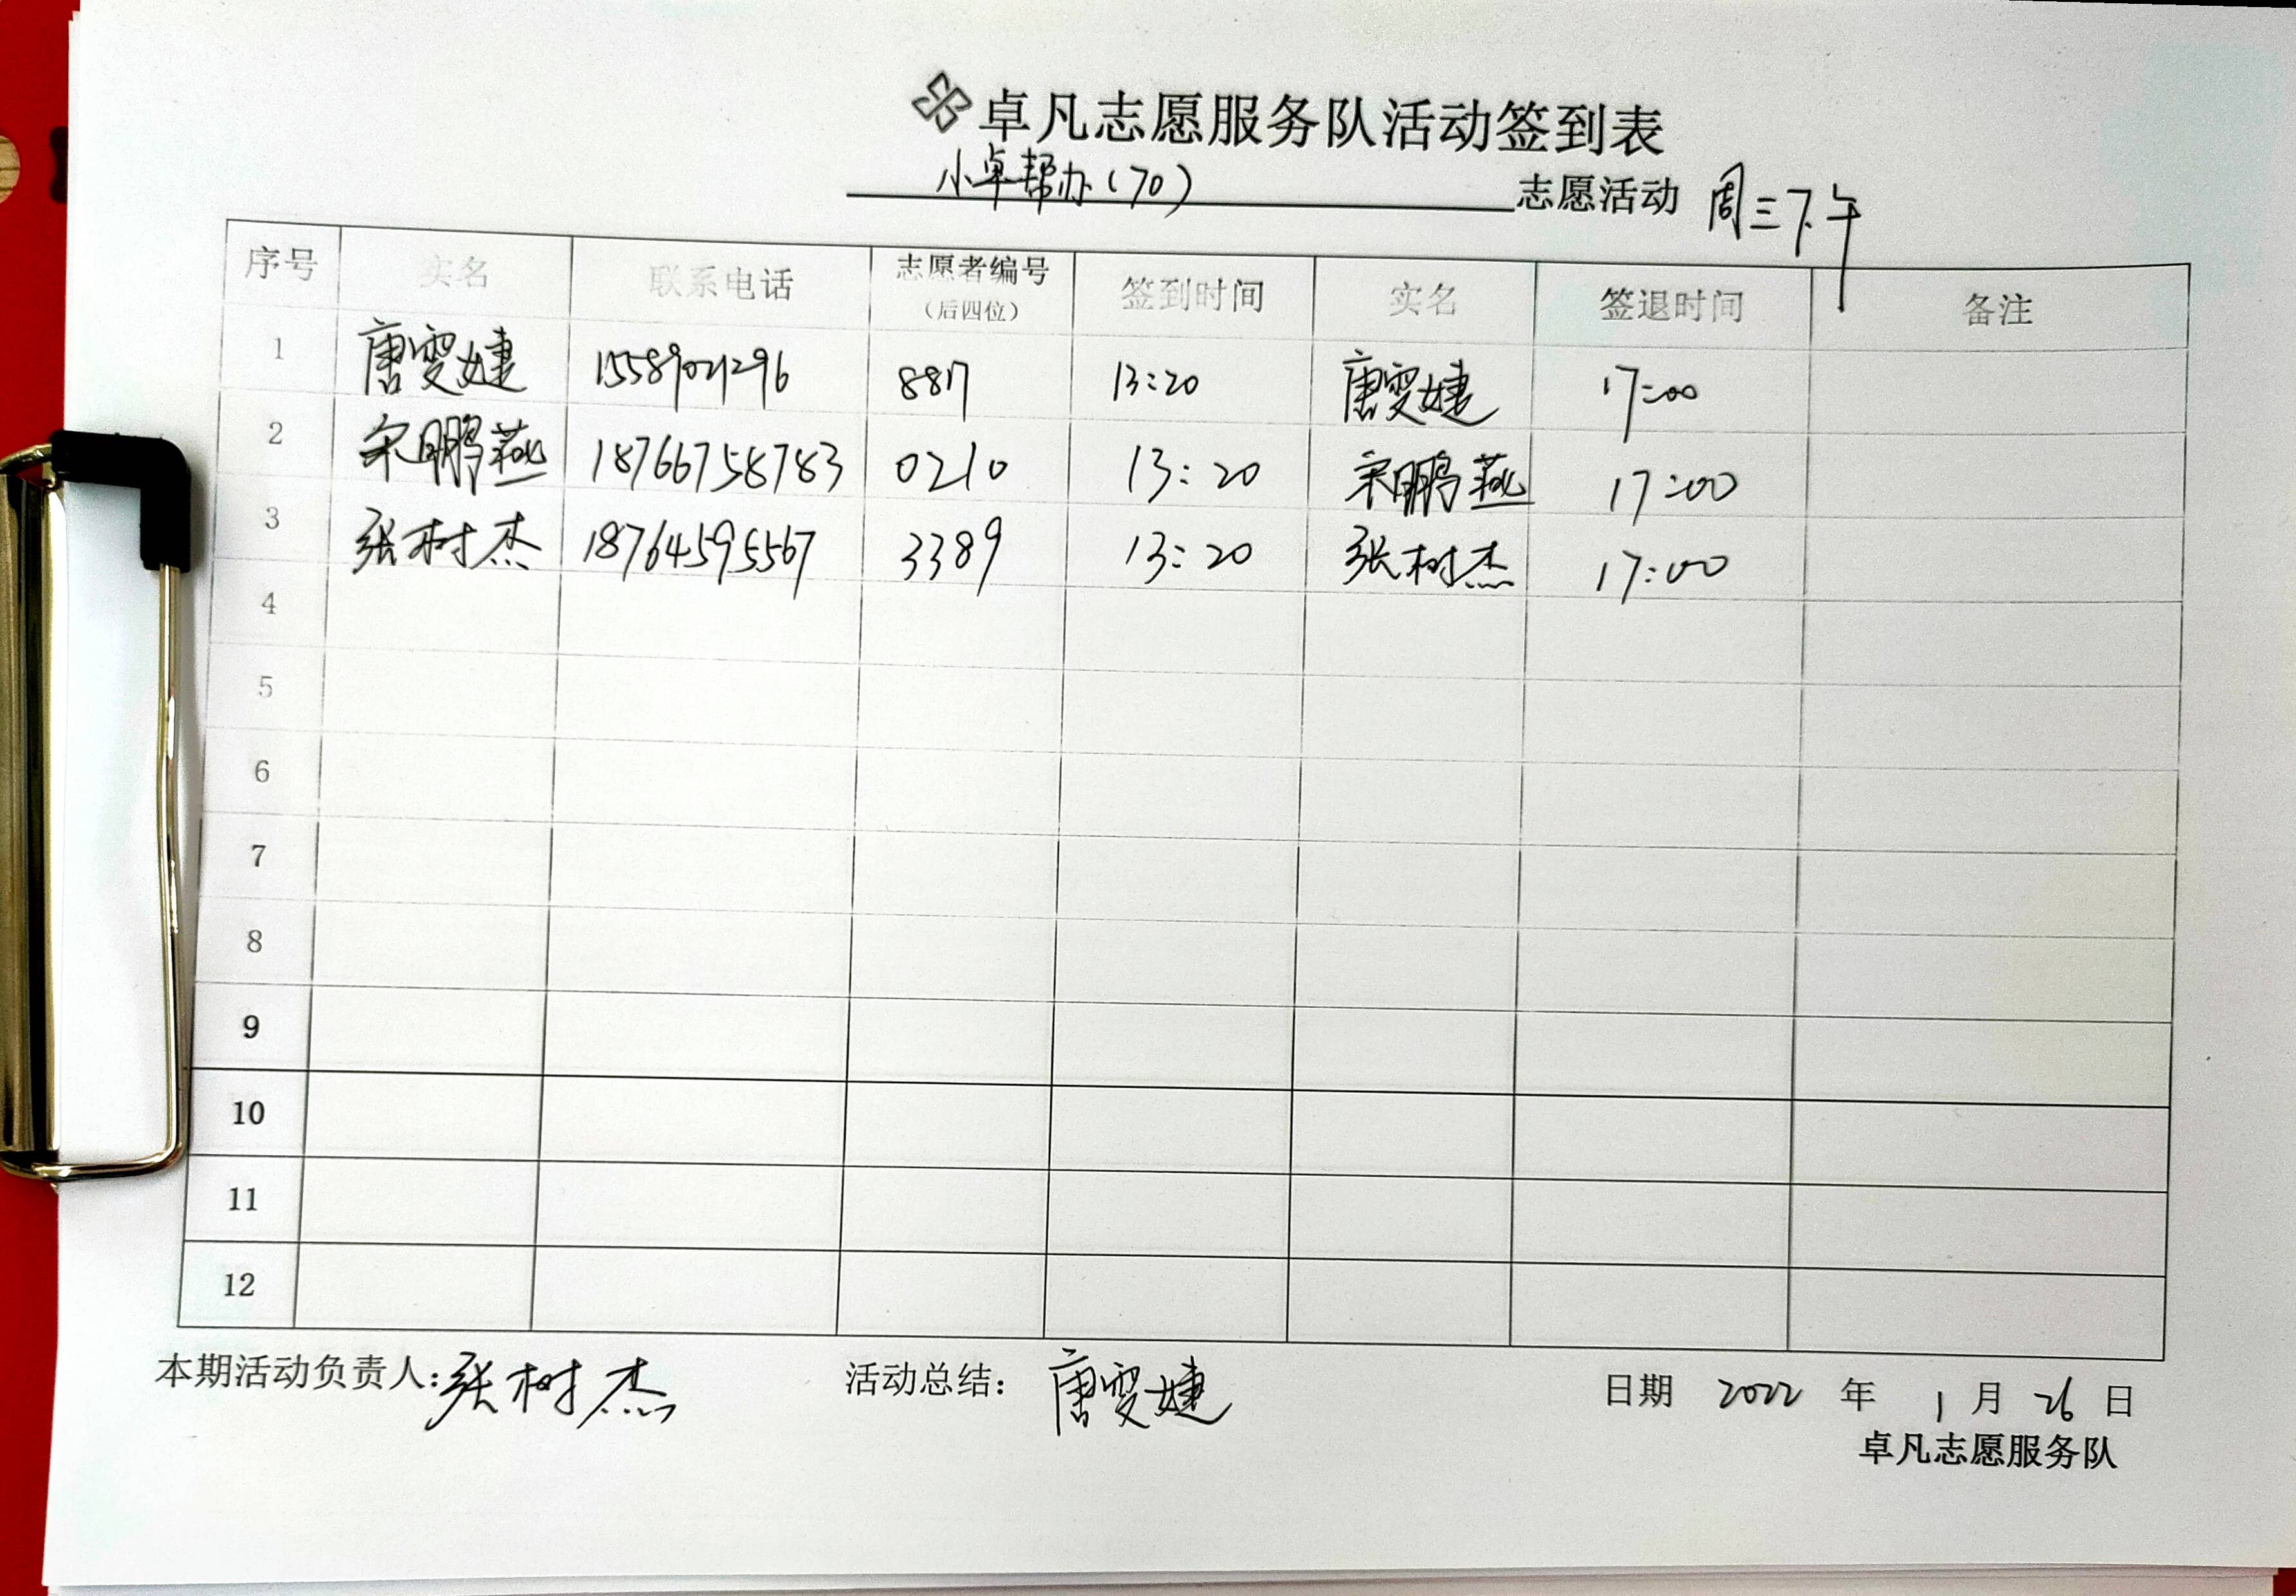 卓凡志愿服务队活动签到表
小卓帮办(70) 志愿活动 周三下午
序号 实名 联系电话 志愿者编号（后四位） 签到时间 实名 签退时间 备注
1 唐雯婕 8817 13:20 唐雯婕 17:00
2 宋鹏燕 18766758783 0210 13:20 宋鹏燕 17:00
3 张树杰 18764595567 3389 13:20 张树杰 17:00
4
5
6
7
8
9
10
11
12
本期活动负责人:张树杰 活动总结: 唐雯婕 日期 2022 年 1 月 26 日
卓凡志愿服务队